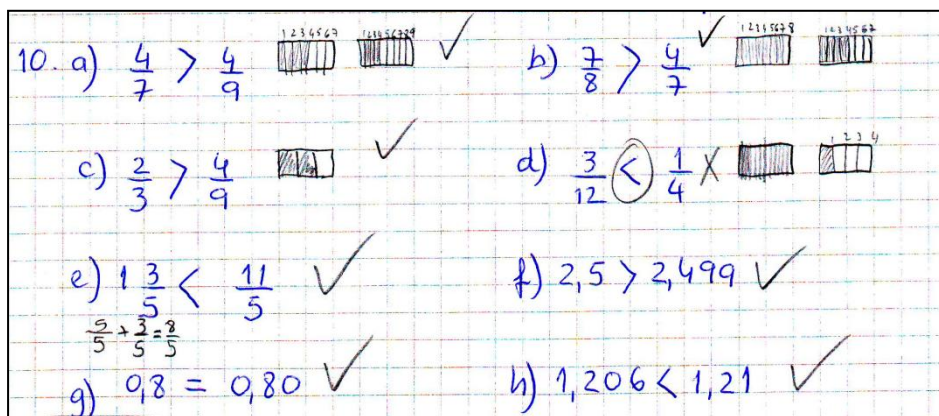 10. a) 4/7 > 4/9 1234567 123456789 ✓ b) 7/8 > 4/7 ✓ 12345678 1234567
c) 2/3 > 4/9 ✓ d) 3/12 < 1/4 X 1 2 3 4
e) 1 3/5 < 11/5 ✓ f) 2,5 > 2,499 ✓
5/5 + 3/5 = 8/5
g) 0,8 = 0,80 ✓ h) 1,206 < 1,21 ✓